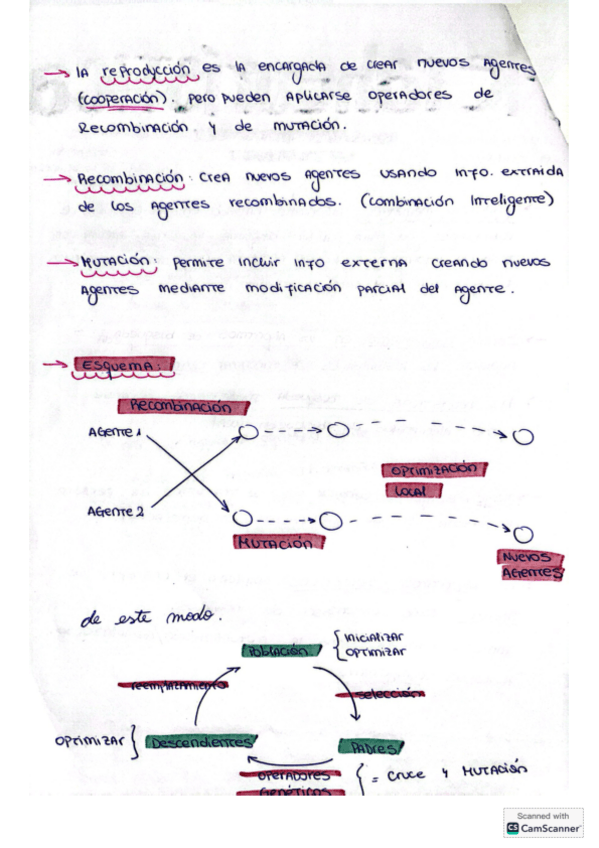 → la reproducción es la encargada de crear nuevos agentes
(cooperación). pero pueden aplicarse operadores de
Recombinación y de mutación.
→ Recombinación: crea nuevos agentes usando info. extraida
de los agentes recombinados. (combinación inteligente)
→ Mutación: permite incluir info externa creando nuevos
agentes mediante modificación parcial del agente.
→ Esquema:
Recombinación
Agente 1
Optimización
local
Agente 2
Mutación
Nuevos
Agentes
de este modo.
Población { inicializar
optimizar
reemplazamiento
selección
optimizar } Descendientes
Padres
operadores
genéticos
{ = cruce y mutación
Scanned with
CS CamScanner